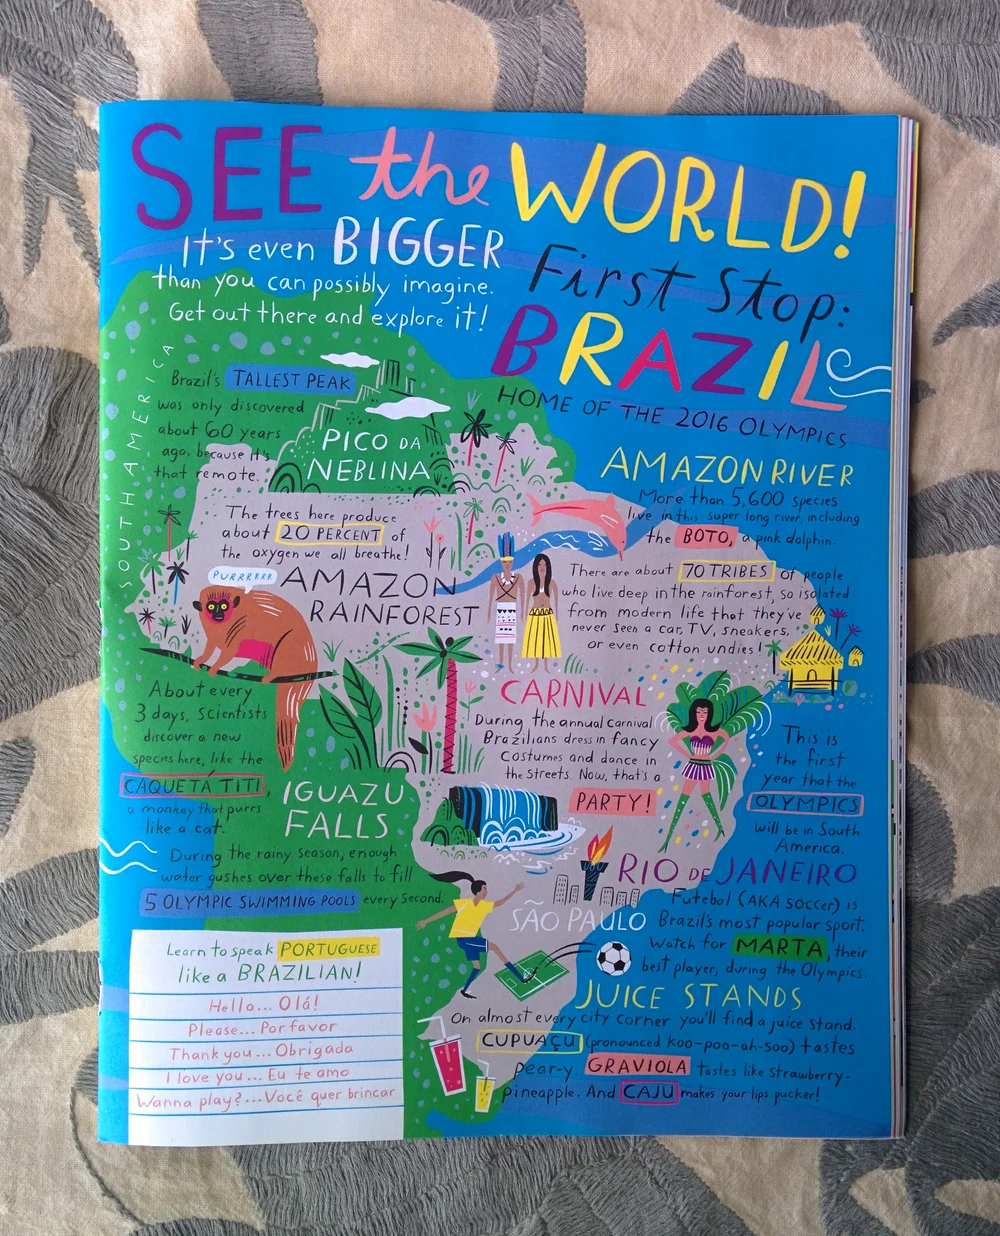 SEE the WORLD!
It's even BIGGER
than you can possibly imagine.
Get out there and explore it!
First Stop:
BRAZIL
HOME OF THE 2016 OLYMPICS
SOUTH AMERICA
Brazil's TALLEST PEAK
was only discovered
about 60 years
ago, because it's
that remote.
PICO DA
NEBLINA
AMAZON RIVER
More than 5,600 species
live in this super long river, including
the BOTO, a pink dolphin.
The trees here produce
about 20 PERCENT of
the oxygen we all breathe!
AMAZON
RAINFOREST
PURRRRRR
There are about 70 TRIBES of people
who live deep in the rainforest, so isolated
from modern life that they've
never seen a car, TV, sneakers,
or even cotton undies!
About every
3 days, scientists
discover a new
species here, like the
CAQUETÁ TITI,
a monkey that purrs
like a cat.
CARNIVAL
During the annual carnival
Brazilians dress in fancy
costumes and dance in
the streets. Now, that's a
PARTY!
This is
the first
year that the
OLYMPICS
will be in South
America.
IGUAZU
FALLS
During the rainy season, enough
water gushes over these falls to fill
5 OLYMPIC SWIMMING POOLS every second.
RIO DE JANEIRO
SÃO PAULO
Futebol (AKA soccer) is
Brazil's most popular sport.
Watch for MARTA, their
best player, during the Olympics.
JUICE STANDS
On almost every city corner you'll find a juice stand.
CUPUAÇU (pronounced koo-poo-ah-soo) tastes
pear-y. GRAVIOLA tastes like strawberry-
pineapple. And CAJU makes your lips pucker!
Learn to speak PORTUGUESE
like a BRAZILIAN!
Hello... Olá!
Please... Por favor
Thank you... Obrigada
I love you... Eu te amo
Wanna play?...Você quer brincar